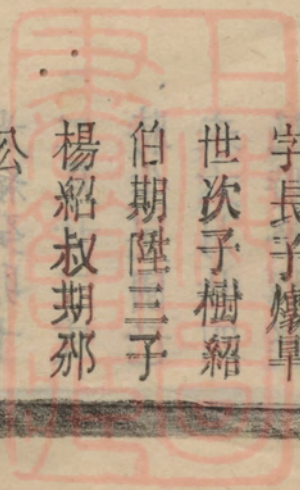 字長子爌㫤
世次子樹紹
伯期陞三子
楊紹叔期邠
公